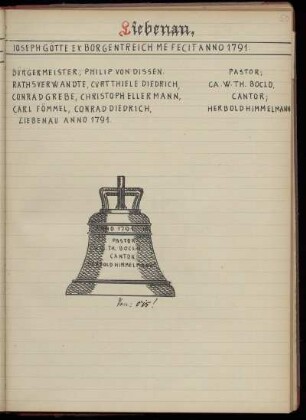 Liebenau.
JOSEPH GOTTE EX BORGENTREICH ME FECIT ANNO 1791.
BÜRGERMEISTER; PHILIP VON DISSEN.
RATHSVERWANDTE, CVRT THIELE DIEDRICH,
CONRAD GREBE, CHRISTOPH ELLERMANN,
CARL FÖMMEL, CONRAD DIEDRICH,
LIEBENAU ANNO 1791.
PASTOR;
CA. W. TH. BOCLO,
CANTOR;
HERBOLD HIMMELMANN
PASTOR
TH. BOCLO
CANTOR
HERBOLD HIMMELMANN